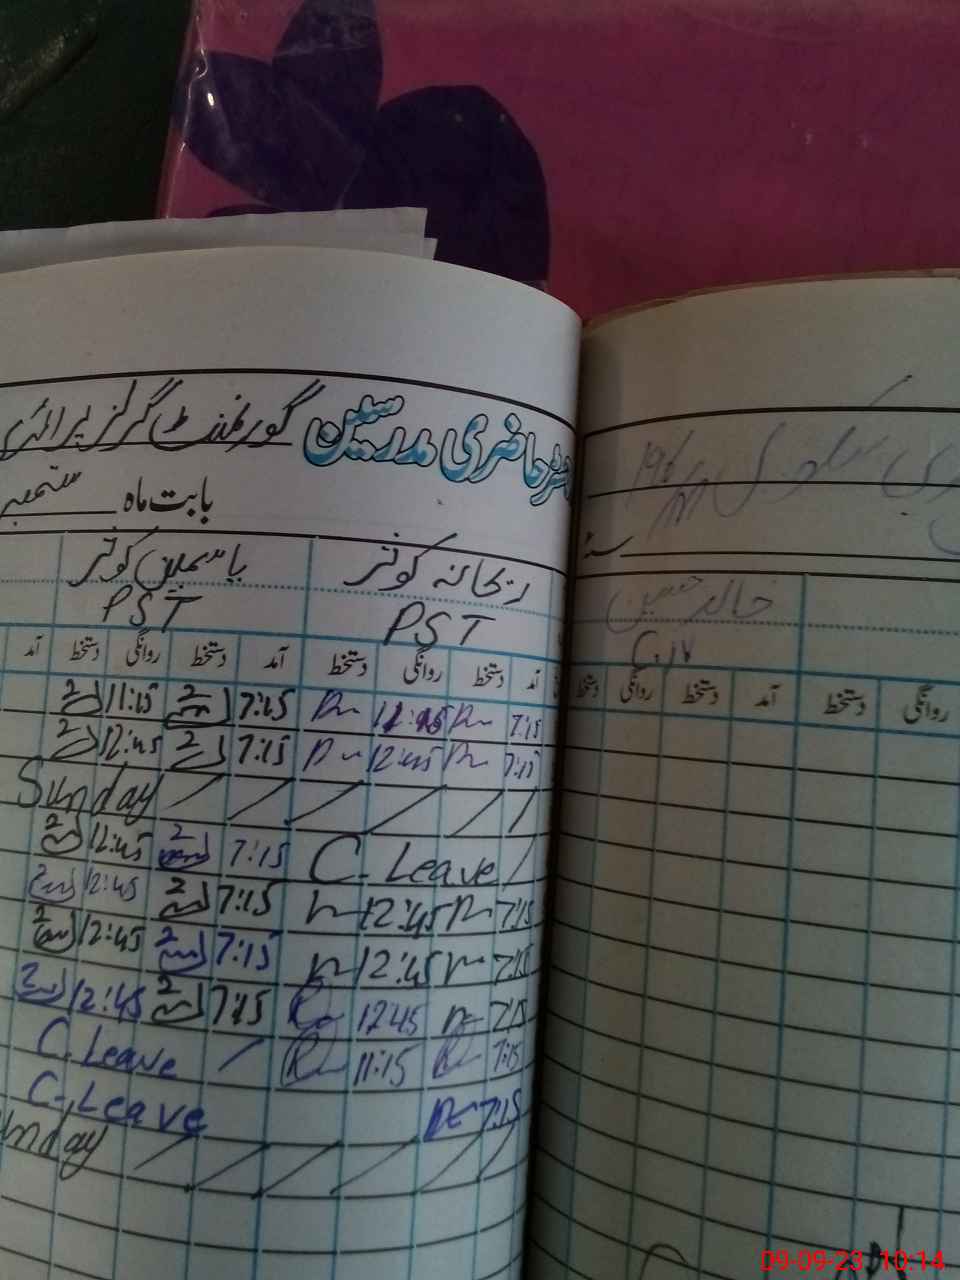 رجسٹر حاضری مدرسین گورنمنٹ گرلز پرائمری
بابت ماہ ستمبر
ریحانہ کوثر یاسمین کوثر
PST PST
آمد دستخط روانگی دستخط آمد دستخط روانگی دستخط آمد
7:15 7:15 11:15
7:15 12:45 7:15 12:45
Sunday
C. Leave 7:15 12:45
7:15 12:45 7:15 12:45
7:15 12:45 7:15 12:45
7:15 1245 7:15 12:45
7:15 11:15 C. Leave
7:15 C. Leave
unday
خالد حسین
روانگی دستخط آمد دستخط روانگی دستخط
09-09-23 10:14